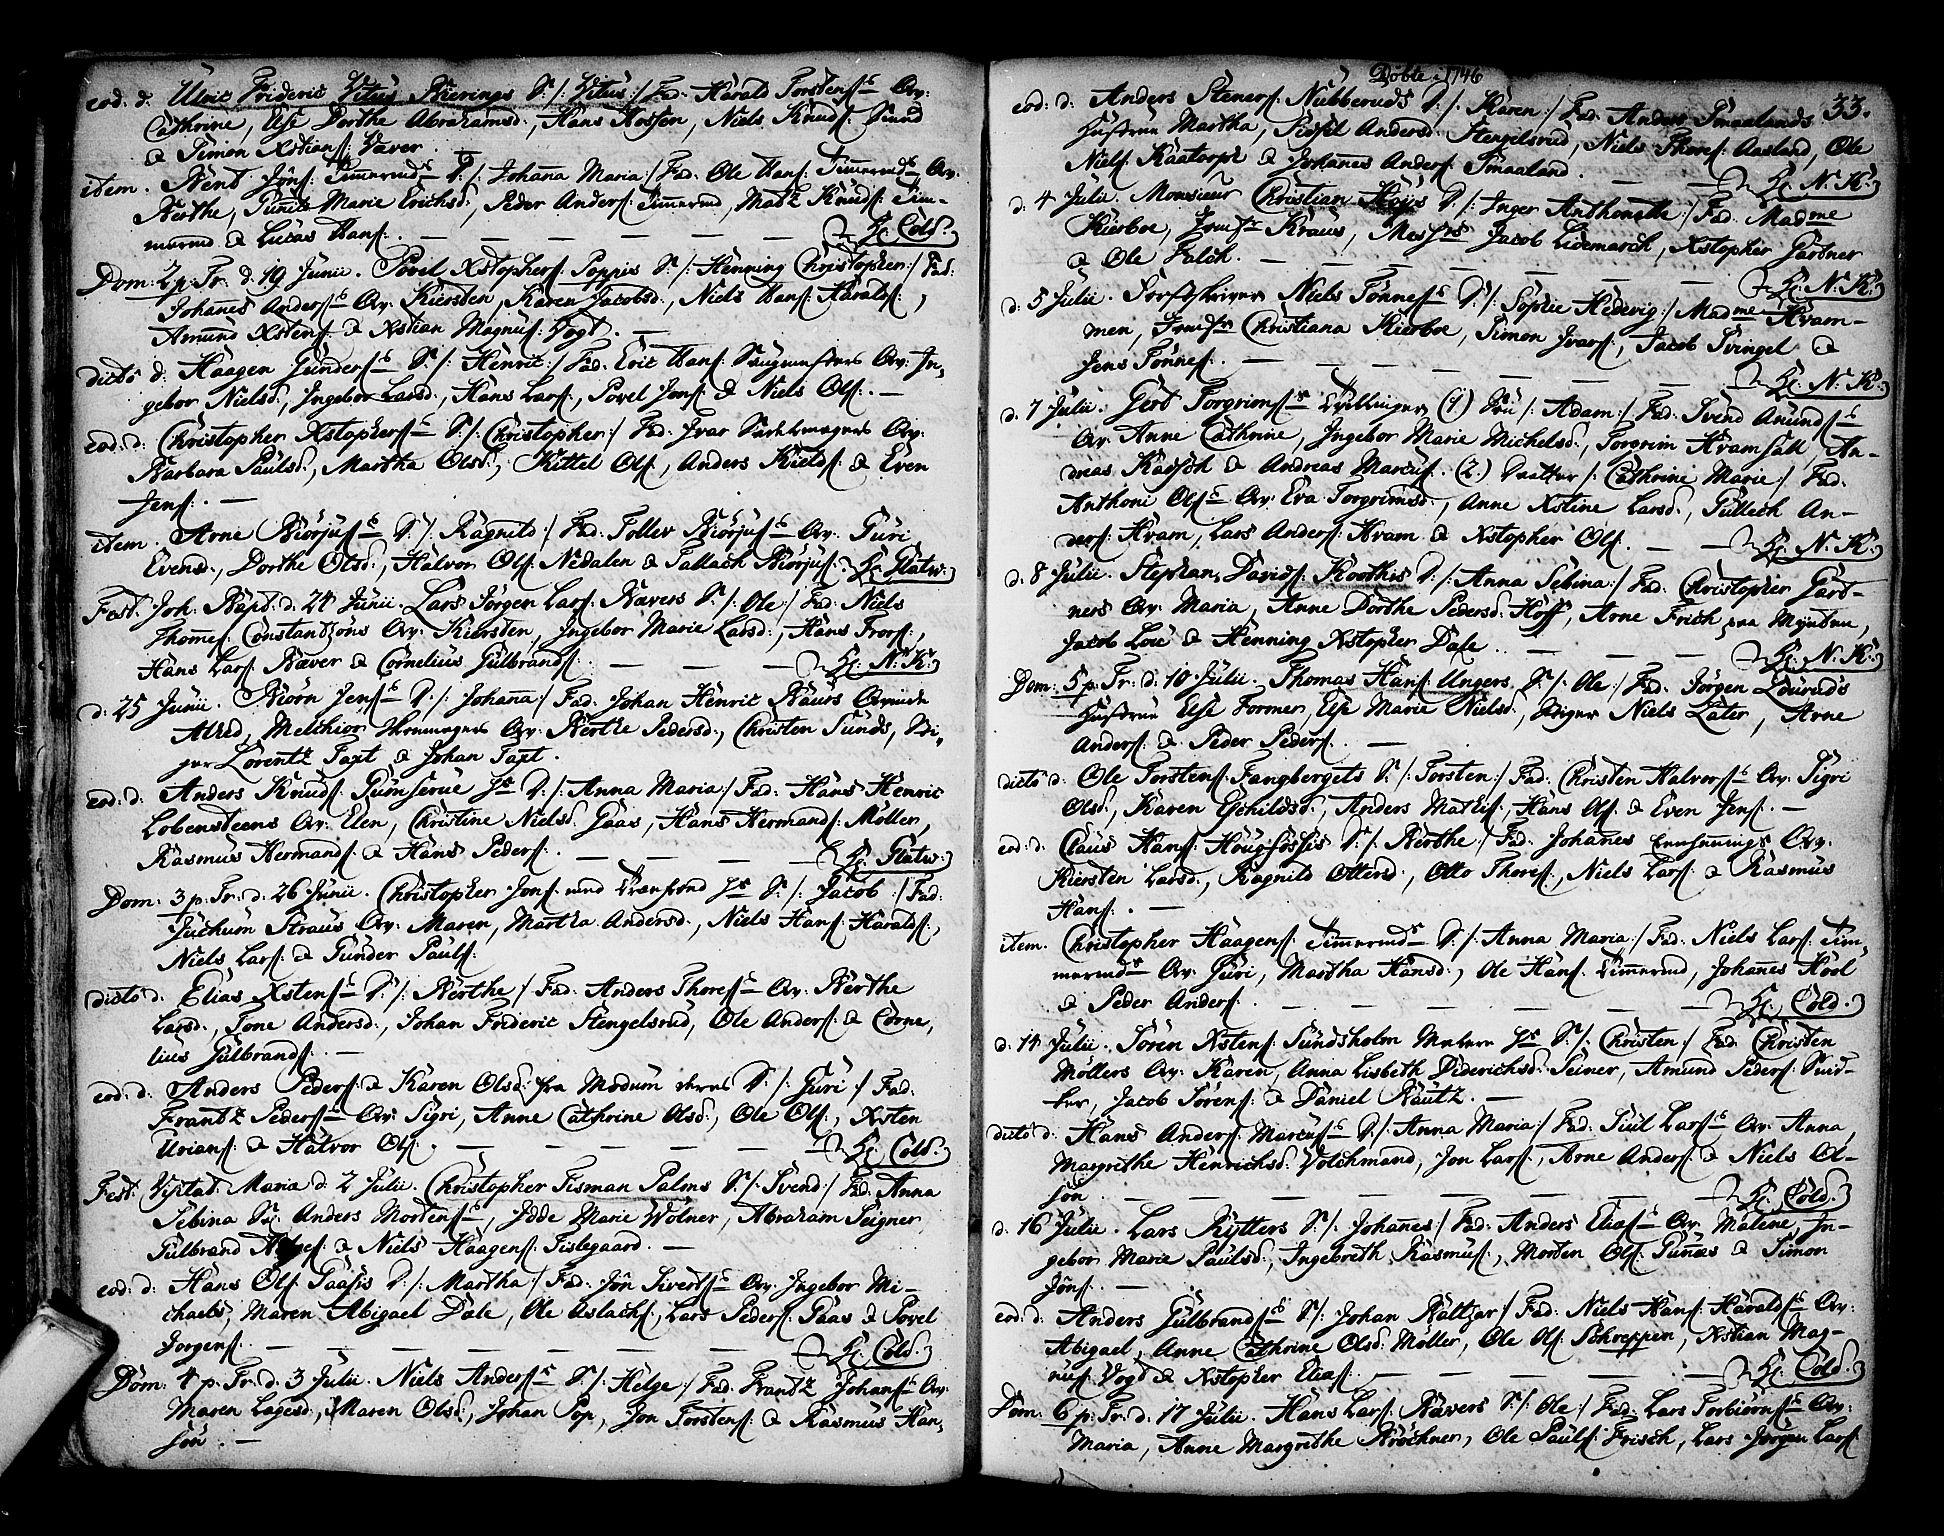 eod: d: Ulric Frideric Vitus Bierings S./: Vitus :/ Fad: Harald Torstens: Qv:
Cathrine, Else Dorthe Abrahamsd:, Hans Rossen, Niels Knuds: Sund
& Simon Xstians: Væver.
item. Bent Jøns: D./: Johana Maria :/ Fad: Ole Hans: Qv:
Berthe, Marie Erichsd:, Peder Anders:, Knuds: Tim-
mermd & Lucas Hans: — Hr. Cold.
Dom: 2 p: Tr: d: 19 Junii. Povel Xstophers: Poppis S./: Henning Christopher :/ Fad:
Johanes Anders: Qv: Kiersten, Karen Jacobsd:, Niels Hans: Haralds:,
Amund Xstens: & Xstian Magnus: Vogt. —
dicto d: Haagen Gunders: S./: Henric :/ Fad: Eric Hans: Qv: In-
gebor Nielsd:, Ingebor Larsd:, Hans Lars:, Povel Jens: & Niels Ols: —
eod: d: Christopher Xstophers: S./: Christopher :/ Fad: Ivar Qv:
Barbara Paulsd:, Martha Olsd:, Kittel Ols:, Anders Kields: & Even
Jens: —
item. Arne Biørjus: D./: Ragnild :/ Fad: Tollev Biørjus: Qv: Guri
Evensd:, Dorthe Olsd:, Halvor Ols: Nedalen & Tallach Biørjus: Hr. Glatw:
Fest: Joh. Bapt: d: 24 Junii. Lars Jørgen Lars: Bævers S./: Ole :/ Fad: Niels
Thomes: Constantzons Qv: Kiersten, Ingebor Marie Larsd:, Hans Frors:,
Hans Lars: Bæver & Cornelius Gulbrands: — Hr. N: K:
d: 25 Junii. Biørn Jens: D./: Johana :/ Fad: Johan Henric
Melchior Qv: Berthe Pedersd:, Christen Sunds,
Lorentz Taxt & Johan Taxt.
eod: d: Anders Knuds: D./: Anna Maria :/ Fad: Hans Henric
Lobensteens Qv: Elen, Christine Nielsd: Gaas, Hans Hermands: Møller,
Rasmus Hermands: & Hans Peders: — Hr. Glatw:
Dom: 3 p: Tr: d: 26 Junii. Christopher Jons: S./: Jacob :/ Fad:
Juchum Straus Qv: Maren, Martha Andersd:, Niels Hans: Haralds:,
Niels Lars: & Gunder Pauls:
dicto d: Elias Xstens: D./: Berthe :/ Fad: Anders Thores: Qv: Berthe
Larsd:, Tone Andersd:, Johan Frideric Stengelsrud, Ole Anders: & Corne-
lius Gulbrands: —
eod: d: Anders Peders: & Karen Olsd: fra Modum deres D./: Guri :/ Fad:
Frantz Peders: Qv: Sigri, Anne Cathrine Olsd:, Ole Ols:, Xsten
Urians: & Halvor Ols: — Hr. Cold.
Fest: Visitat: Maria d: 2 Julii. Christopher Tisman Palms S./: Svend :/ Fad: Anna
Sebina Anders Mortens:, Idde Marie Wolner, Abraham Seigner,
Gulbrand & Niels Haagens: Tislegaard. —
eod: d: Hans Ols: Gaasis D./: Martha :/ Fad: Jon Siverts: Qv: Ingebor Mi-
chaels:, Maren Abigael Dale, Ole Aslachs:, Lars Peders: Gaas & Povel
Jorgens: — Hr. Cold.
Dom: 4 p: Tr: d: 3 Julii. Niels Anders: S./: Helge :/ Fad: Frantz Johans: Qv:
Maren Lagesd:, Maren Olsd:, Johan Pop, Jon Torstens: & Rasmus Han-
son. —
Døbte i 1746
33.
eod: d: Anders Steners: Nubberuds D./: Karen :/ Fad: Anders Smaalands
Hustrue Martha, Sissel Andersd: Stengelsrud, Niels Thores: Aasland, Ole
Niels: Kaatorph & Johanes Anders: Smaaland. — Hr. N: K:
d: 4 Julii. Monsieur Christian D./: Inger Anthonette :/ Fad: Madme
Kierboe, Jomfr Kraus, Messrs Jacob Lidemarch, Xstopher Gartner
& Ole Falch. — Hr. N: K:
d: 5 Julii. Forstskriver Niels Tønnes: D./: Sophie Hedevig :/ Madme Hram-
men, Jomfr Christiana Kierboe, Simon Ivars:, Jacob Svingel &
Jens Tønnes: — Hr. N: K:
d: 7 Julii. Gert Torgrims: Tvillinger (1) Søn /: Adam :/ Fad: Svend Amunds:
Qv: Anne Cathrine, Ingebor Marie Michelsd:, Torgrim Kramsall, An-
dreas & Andreas Marcus: (2.) Datter /: Cathrine Marie :/ Fad:
Anthoni Ols: Qv: Eva Torgrimsd:, Anne Xstine Larsd:, Gullech An-
ders: Hram, Lars Anders: Hram & Xstopher Ols: — Hr. N: K:
d: 8 Julii. Stephan Davids: Koothis D./: Anna Sebina :/ Fad: Christopher Gart-
ners Qv: Maria, Anne Dorthe Pedersd: Hoff, Arne Frich paa Mynten,
Jacob Loue & Henning Xstopher Dale. — Hr. N: K:
Dom: 5 p: Tr: d: 10 Julii. Thomas Hans: Ungers S./: Ole :/ Fad: Jørgen
Hustrue Else Former, Else Marie Nielsd:, Stiger Niels Later, Arne
Anders: & Peder Peders: —
dicto d: Ole Torstens: Fangbergets S./: Torsten :/ Fad: Christen Halvors: Qv: Sigri
Olsd:, Karen Eschildsd:, Anders Mathis:, Hans Ols: & Even Jens: —
eod: d: Claus Hans: Hougfossis D./: Berthe :/ Fad: Johanes Qv:
Kiersten Larsd:, Ragnild Ottersd:, Otto Thores:, Niels Lars: & Rasmus
Hans: —
item. Christopher Haagens: D./: Anna Maria :/ Fad: Niels Lars: Tim-
mermds Qv: Guri, Martha Hansd:, Ole Hans: Timermd, Johanes
& Peder Anders: — Hr. Cold.
d: 14 Julii. Søren Xstens: Sundsholm S./: Christen :/ Fad: Christen
Møllers Qv: Karen, Anna Lisbeth Diderichsd: Seiner, Amund Peders:
Jacob Sørens: & Daniel Rautz. —
dicto d: Hans Anders: Marcus: D./: Anna Maria :/ Fad: Siul Lars: Qv: Anna,
Margrethe Henrichsd: Volchmand, Jon Lars:, Arne Anders: & Niels Ol-
son. — Hr. Cold.
d: 16 Julii. Lars Rytters S./: Johanes :/ Fad: Anders Elias: Qv: Malene, In-
gebor Marie Paulsd:, Ingebreth Rasmus:, Morten Ols: & Simon
Jøns: —
eod: d: Anders Gulbrands: S./: Johan Baltzar :/ Fad: Niels Hans: Haralds: Qv:
Abigael, Anne Cathrine Olsd: Møller, Ole Ols: Schreppen, Xstian Mag-
nus: Vogt & Xstopher Elias: — Hr. Cold.
Dom: 6 p: Tr: d: 17 Julii. Hans Lars: Bævers S./: Ole :/ Fad: Lars Torbiørns: Qv:
Maria, Anne Margrethe Brøchner, Ole Pauls: Frisch, Lars Jørgen Lars: